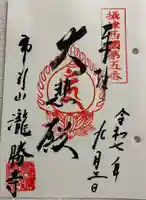 攝津西國第五番
奉拝
令和七年
九月
大悲殿
瀧勝寺